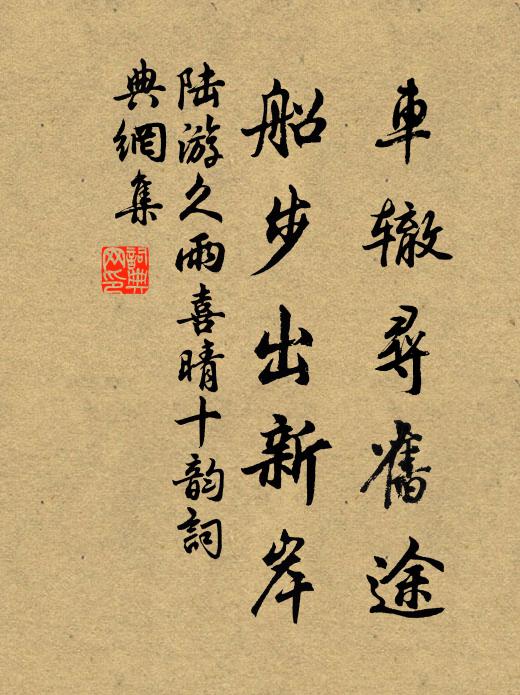 車辙尋舊途
船步出新岸
陆游久雨喜晴十韵詞
典網集
詞典网印